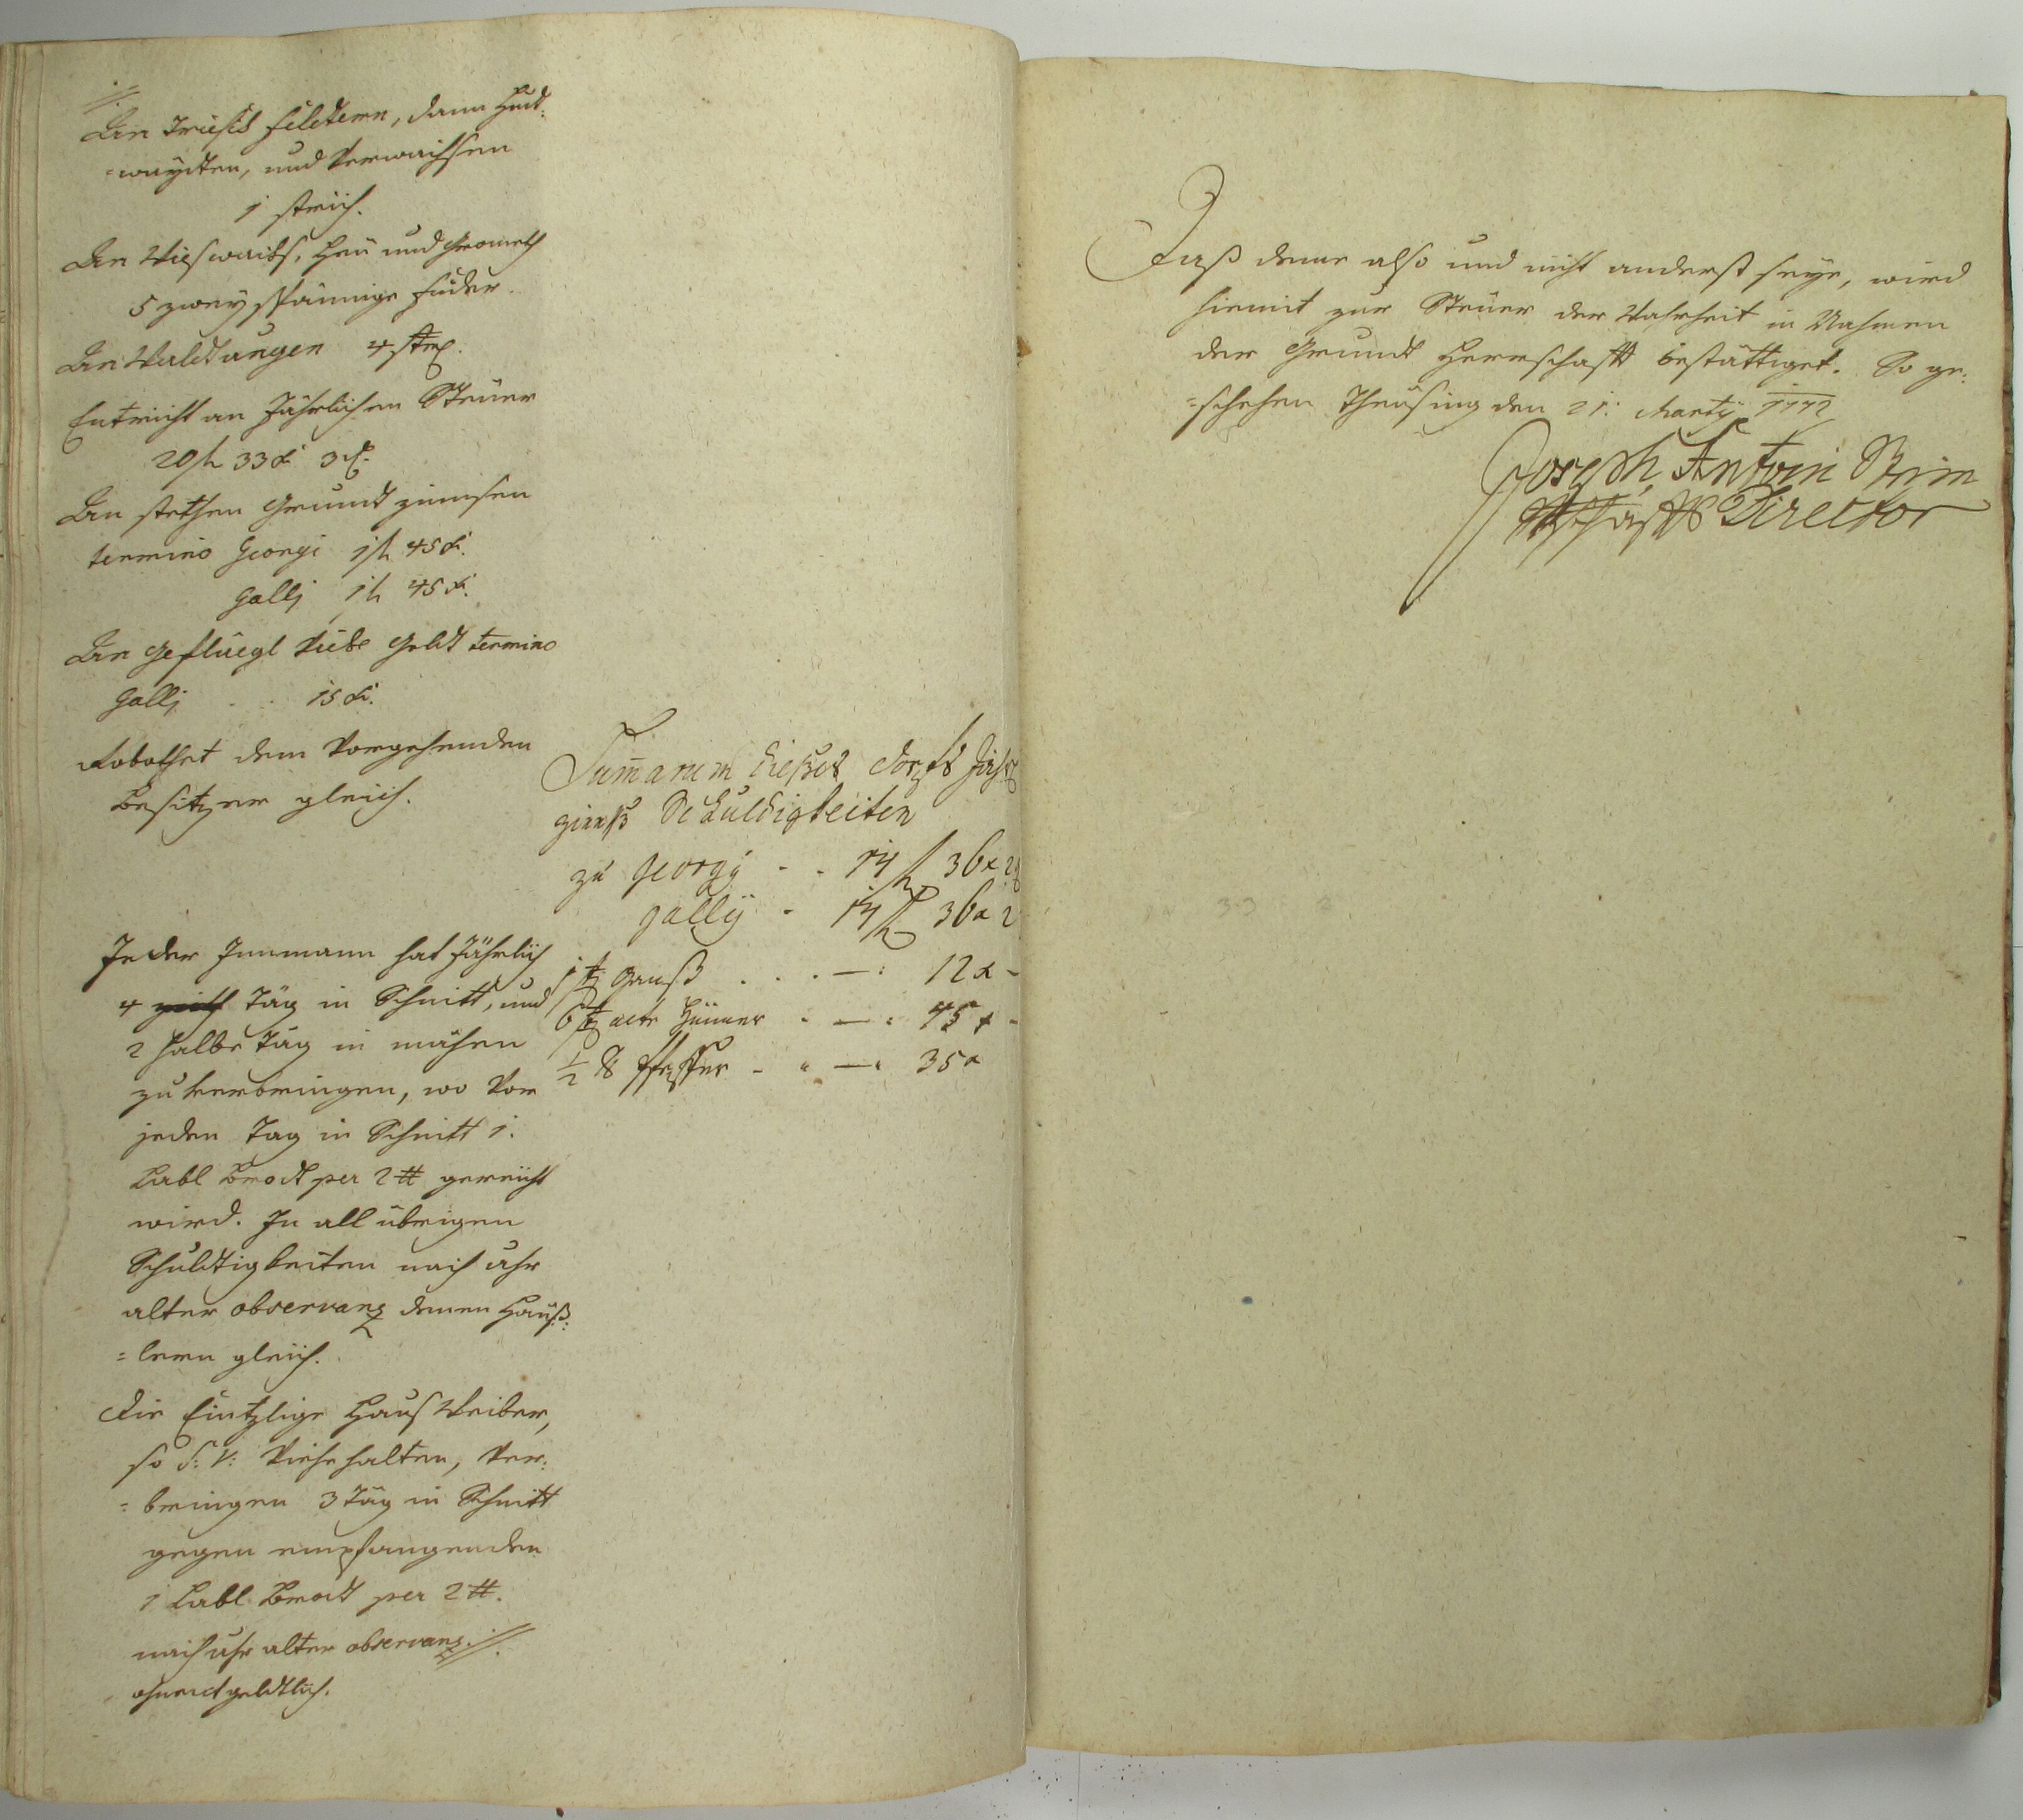 An Triesch feldtern, dann Hudt¬
=weydten, und verwachsen
1 strich.
An Wieswachs, Heu und Grometh
5 zweyspännige Fuder.
An Waldungen 4 str.
Entricht an Jährlichen Steuer
20 f 33 Kr. 3 d.
An stethen Grundt zinnsen
termino Georgi 1 f 45 Kr.
Galli 1 f 45 Kr.
An Geflüegl Geldt termino
Galli . . 15 Kr.
Robothet dem Vorgehenden
Besitzer gleich.
Jeder Innmann hat Jährlich
4 Täg in Schnitt, und
2 halbe Täg in mähen
zu verbringen, wo Vor
jeden Tag in Schnitt 1.
Labl Brodt per 2 ℔ gereicht
wird. In all übrigen
Schuldtigkeiten nach uhr
alter observanz denen Häuß¬
=lern gleich.
Die Eintzlige Haus Weiber,
so S: V: Viehe halten, Ver¬
=bringen 3 Täg in Schnitt
gegen empfangenden
1 Labl Brodt per 2 ℔.
nach uhr alter observanz.//.
ohnendtgeldtlich.
Summarum dießes Dorfs
zinnß Schuldigkeiten
zu Georgy - - 14 f 36 x 2
gally - 14 f 36 x 2
1 ½ Ganß . . . —: 12 x -
6 ½ alte Hünner - —: 45 x -
½ ℔ Pfeffer - " —" 35 x
Daß deme also und nicht anderst seye, wird
hiemit zur Steuer der Wahrheit in Nahmen
der Grundt Herrschafft bestättiget. So ge¬
=schehen Theusing den 21: Martij 1772
Joseph Antoni
Director